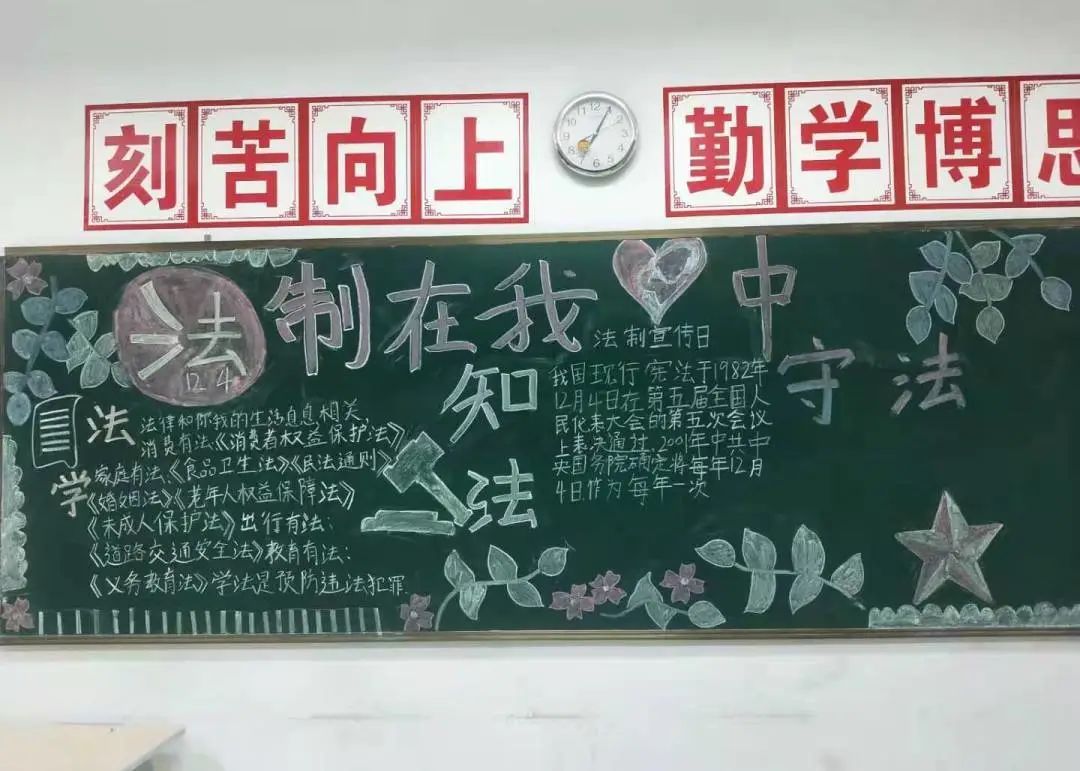 刻苦向上
勤学博思
法制在我中
12 4
知法
守法
学法
法律和你我的生活息息相关,
消费有法:《消费者权益保护法》
家庭有法:《食品卫生法》《民法通则》
《婚姻法》《老年人权益保障法》
《未成人保护法》出行有法:
《道路交通安全法》教育有法:
《义务教育法》学法是预防违法犯罪
法制宣传日
我国现行宪法于1982年
12月4日在第五届全国人
民代表大会的第五次会议
上表决通过,2001年中共中
央国务院确定将每年12月
4日作为每年一次